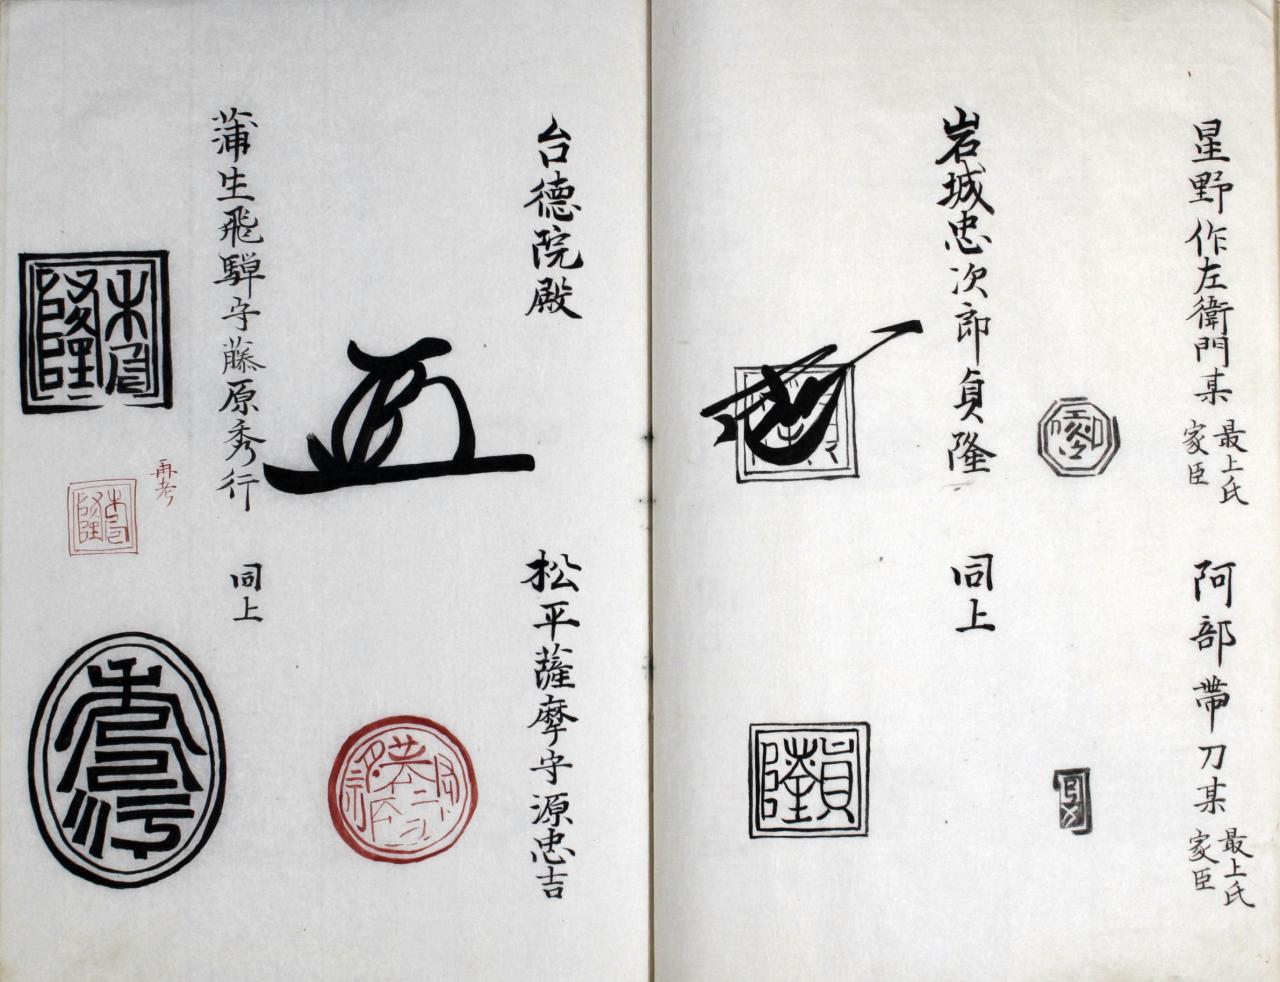 星野作左衛門某 最上氏家臣
阿部帯刀某 最上氏家臣
岩城忠次郎貞隆
同上
貞隆
台徳院殿
松平薩摩守源忠吉
蒲生飛騨守藤原秀行
再考
同上
秀行